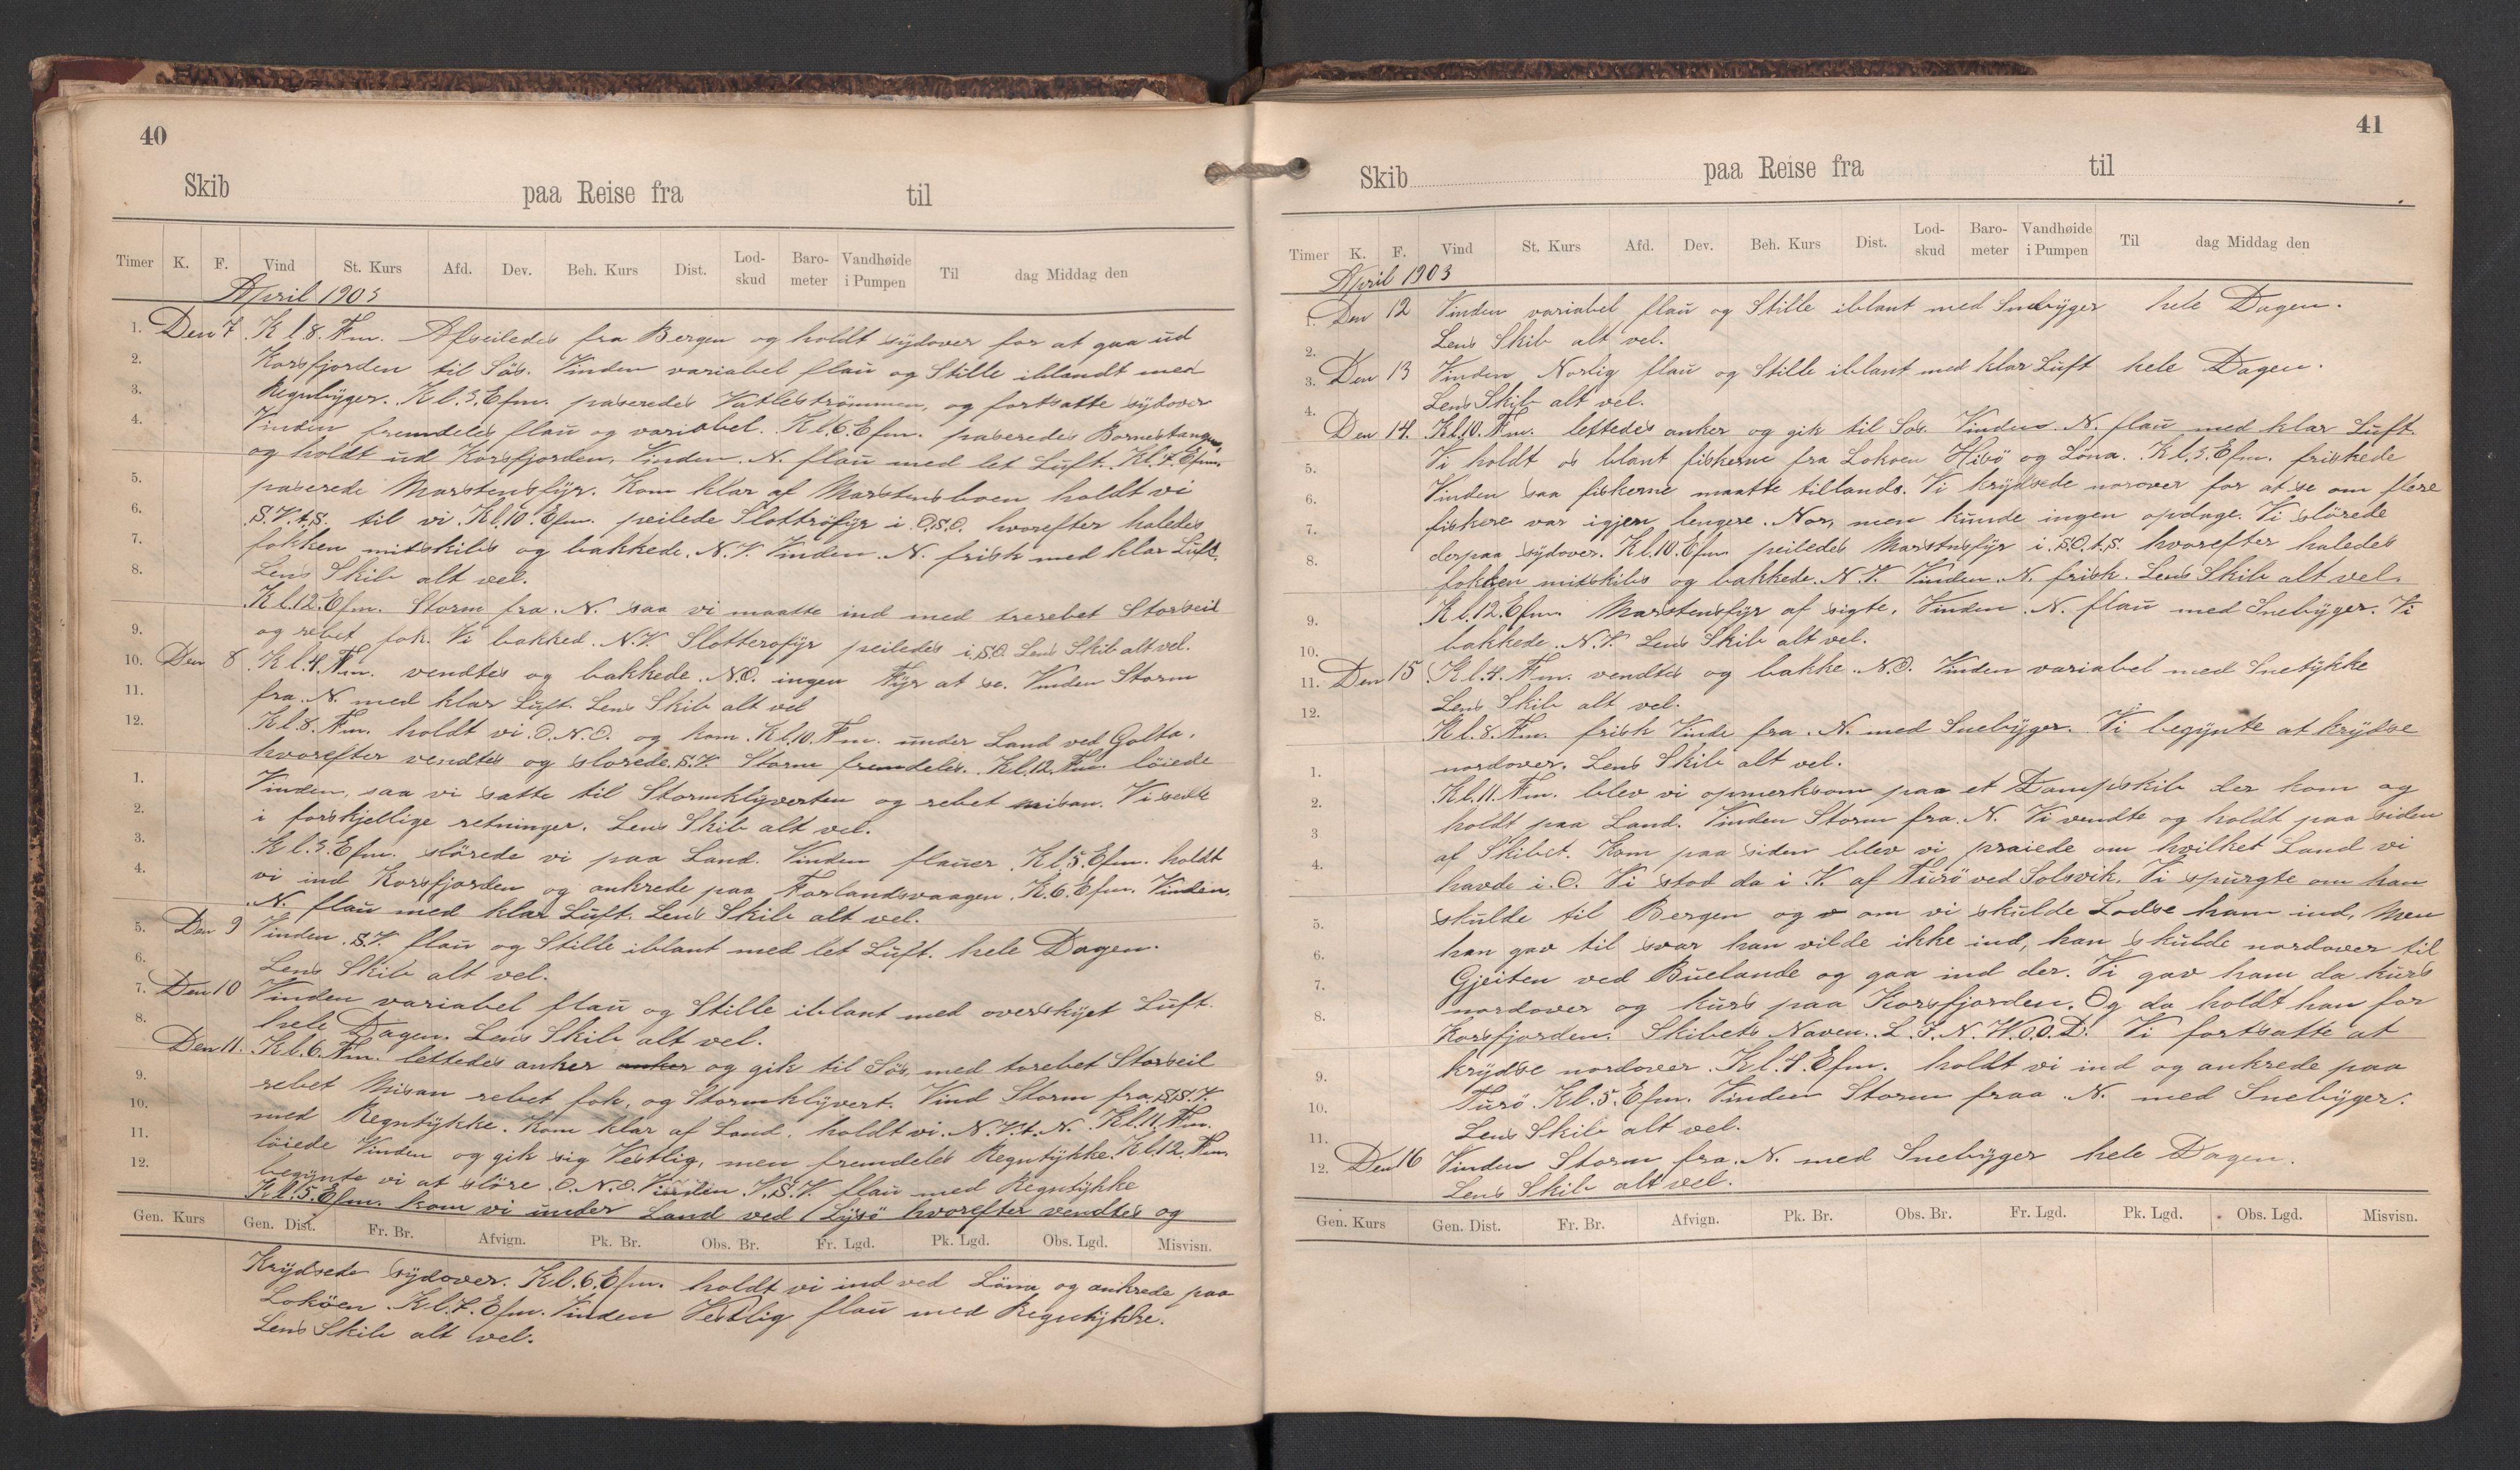 40
Skib paa Reise fra til
Timer K. F. Vind St. Kurs Afd. Dev. Beh. Kurs Dist. Lod-skud Baro-meter Vandhøide i Pumpen Til dag Middag den
April 1903
1. Den 7 Kl 8. Fm. Afseiledes fra Bergen og holdt sydover for at gaa ud
2. Korsfjorden til Søs. Vinden variabel flau og Stille iblandt med
3. Regnbyger. Kl. 3. Efm. paseredes Vatlestrømmen, og fortsatte sydover
4. Vinden fremdeles flau og variabel. Kl. 6. Efm. paseredes Bornestangen,
og holdt ud Korsfjorden, Vinden. N. flau med let Luft. Kl. 7. Efm.
5. paserede Marstensfyr. Kom klar af Marstensboen holdt vi
6. S.V.t.S. til vi Kl. 10. Efm. peilede Slottröfyr i O.S.O. hvorefter haledes
7. fokken mitskibs og bakkede. N.V. Vinden. N. frisk med klar Luft.
8. Lens Skib alt vel.
Kl. 12. Efm. Storm fra. N. saa vi maatte ind med trerebet Storseil
9. og rebet fok. Vi bakked. N.V. Slotterofyr peiledes i. S.O. Lens Skib alt vel.
10. Den 8 Kl. 4. Fm. vendtes og bakkede. N.O. ingen Fyr at se. Vinden Storm
11. fra. N. med klar Luft. Lens Skib alt vel
12. Kl. 8. Fm. holdt vi. O.N.O. og kom Kl. 10. Fm. under Land ved Golta.
hvorefter vendtes og slorede. S.V. Storm fremdeles. Kl. 12. Fm. löiede
1. Vinden, saa vi satte til Stormklyverten og rebet misan. Vi seilte
2. i forskjellige retninger. Lens Skib alt vel.
3. Kl. 3. Efm. slörede vi paa Land. Vinden flauer. Kl. 5. Efm. holdt
4. vi ind Korsfjorden og ankrede paa Forlandsvaagen. K. 6. Efm. Vinden.
N. flau med klar Luft. Lens Skib alt vel.
5. Den 9 Vinden. S.V. flau og Stille iblant med let Luft. hele Dagen.
6. Lens Skib alt vel.
7. Den 10 Vinden variabel flau og Stille iblant med overskyet Luft.
8. hele Dagen. Lens Skib alt vel.
Den 11. Kl. 6. Fm. lettedes anker anker og gik til Søs, med torebet Storseil
9. rebet Misan rebet fok, og Stormklyvert. Vind Storm fra. S.S.V.
10. med Regntykke. Kom klar af Land. holdt vi. N.V.t.N. Kl. 11. Fm.
11. löiede Vinden og gik sig Vestlig, men fremdeles Regntykke. Kl. 12. Fm.
12. begynte vi at slöre. O.N.O. Vinden V.S.V. flau med Regntykke
Kl. 5. Efm. kom vi under Land ved Lysö hvorefter vendtes og
Gen. Kurs Gen. Dist. Fr. Br. Afvign. Pk. Br. Obs. Br. Fr. Lgd. Pk. Lgd. Obs. Lgd. Misvisn.
Krydsede sydover. Kl. 6. Efm. holdt vi ind ved Löna og ankrede paa
Loköen. Kl. 7. Efm. Vinden Vestlig flau med Regntykke.
Lens Skib alt vel.
41
Skib paa Reise fra til
Timer K. F. Vind St. Kurs Afd. Dev. Beh. Kurs Dist. Lod-skud Baro-meter Vandhøide i Pumpen Til dag Middag den
April 1903
1. Den 12 Vinden variabel flau og Stille iblant med Snebyger hele Dagen.
2. Lens Skib alt vel.
3. Den 13 Vinden Norlig flau og Stille iblant med klar Luft hele Dagen.
4. Lens Skib alt vel.
Den 14. Kl. 10. Fm. lettedes anker og gik til Søs. Vinden. N. flau med klar Luft.
5. Vi holdt os blant fiskerne fra Lokoen Hisö og Löna. Kl. 3. Efm. friskede
6. Vinden saa fiskerne maatte tillands. Vi krydsede norover for at se om flere
7. fiskere var igjen lengere. Nor, men kunde ingen opdage. Vi slörede
derpaa sydover. Kl. 10. Efm peiledes Marstnsfyr i. S.O.t.S. hvorefter haledes
8. fokken mitskibs og bakkede. N.V. Vinden. N. frisk. Lens Skib alt vel.
9. Kl. 12. Efm. Marstensfyr af sigte, Vinden. N. flau med Snebyger. Vi
10. bakkede. N.V. Lens Skib alt vel.
11. Den 15 Kl. 4. Fm. vendtes og bakke. N.O. Vinden variabel med Snetykke
12. Lens Skib alt vel.
Kl. 8. Fm. frisk Vind fra. N. med Snebyger. Vi begynte at krydse
1. nordover. Lens Skib alt vel.
2. Kl. 11. Fm. blev vi opmerksom paa et Dampskib der kom og
3 holdt paa Land. Vinden Storm fra. N. Vi vendte og holdt paa siden
4. af Skibet. Kom paa siden blev vi praiede om hvilket Land vi
havde i. O. Vi stod da i. V. af Turö ved Solsvik. Vi spurgte om han
5. skulde til Bergen og om vi skulde Lodse ham ind, Men
6. han gav til svar han vilde ikke ind, han skulde nordover til
7. Gjeiten ved Buelande og gaa ind der. Vi gav ham da kurs
8. nordover og kurs paa Korsfjorden. Og da holdt han for
Korsfjorden. Skibets Naven. L.I.N.W.O.O.D. Vi fortsatte at
9. krydse nordover. Kl. 4. Efm. holdt vi ind og ankrede paa
10. Turö. Kl. 5. Efm. Vinden Storm fraa. N. med Snebyger.
11. Lens Skib alt vel.
12. Den 16 Vinden Storm fra. N. med Snebyger hele Dagen.
Lens Skib alt vel.
Gen. Kurs Gen. Dist. Fr. Br. Afvign. Pk. Br. Obs. Br. Fr. Lgd. Pk. Lgd. Obs. Lgd. Misvisn.